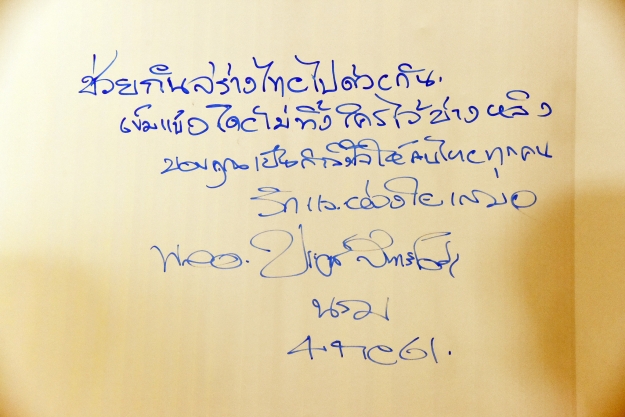 ช่วยกันสร้างไทยไปด้วยกัน.
เข้มแข็ง โดยไม่ทิ้งใครไว้ข้างหลัง
ขอบคุณเป็นกำลังใจให้คนไทยทุกคน
รักและห่วงใยเสมอ
พลอ. ประยุทธ์ จันทร์โอชา
นรม